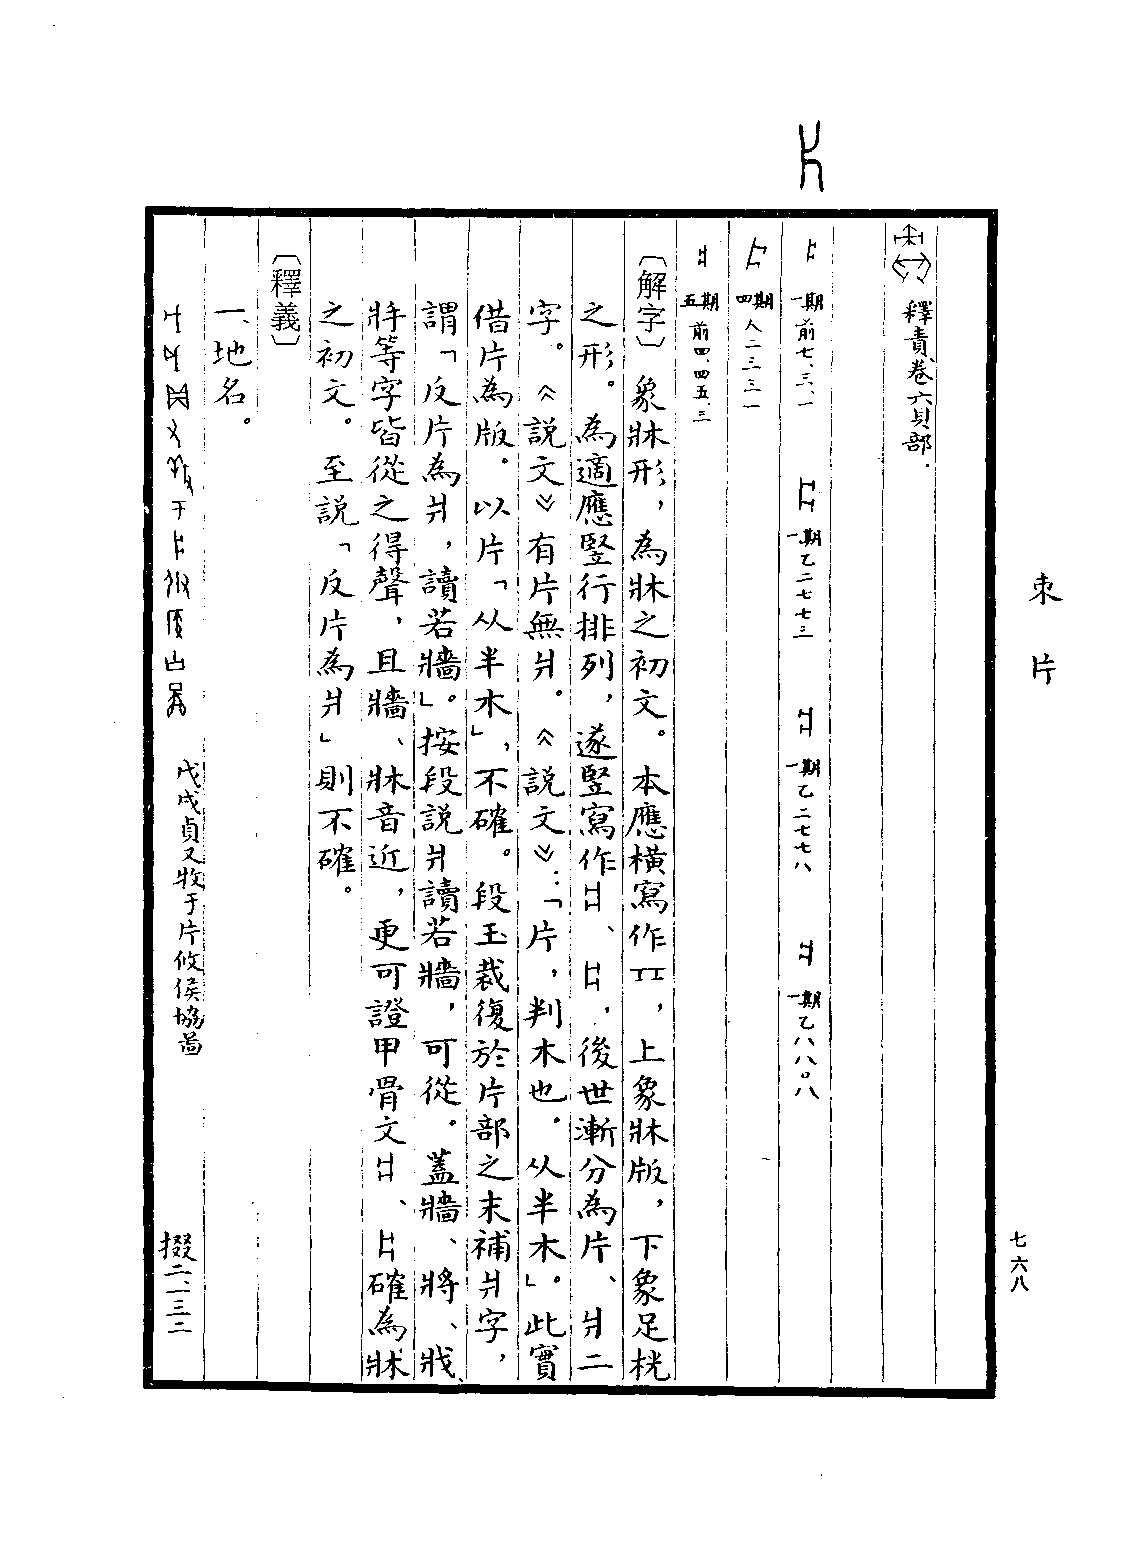 釋責卷六貝部．
一期 前七、三、一
一期 乙二七七三
一期 乙二七七八
一期 乙八八〇八
四期 人二三三一
五期 前四、四五、三
〔解字〕 象牀形，為牀之初文。本應橫寫作，上象牀版，下象足桄
之形。為適應豎行排列，遂豎寫作、，後世漸分為片、爿二
字。《說文》有片無爿。《說文》：「片，判木也．从半木」。此實
借片為版。以片「从半木」，不確。段玉裁復於片部之末補爿字，
謂「反片為爿，讀若牆」。按段說爿讀若牆，可從．蓋牆、將、戕、
牂等字皆從之得聲，且牆、牀音近，更可證甲骨文、確為牀
之初文。至說「反片為爿」則不確。
〔釋義〕
一、地名。
戊戌貞又牧于片攸侯協啚
掇二、一三二
朿 片
七六八